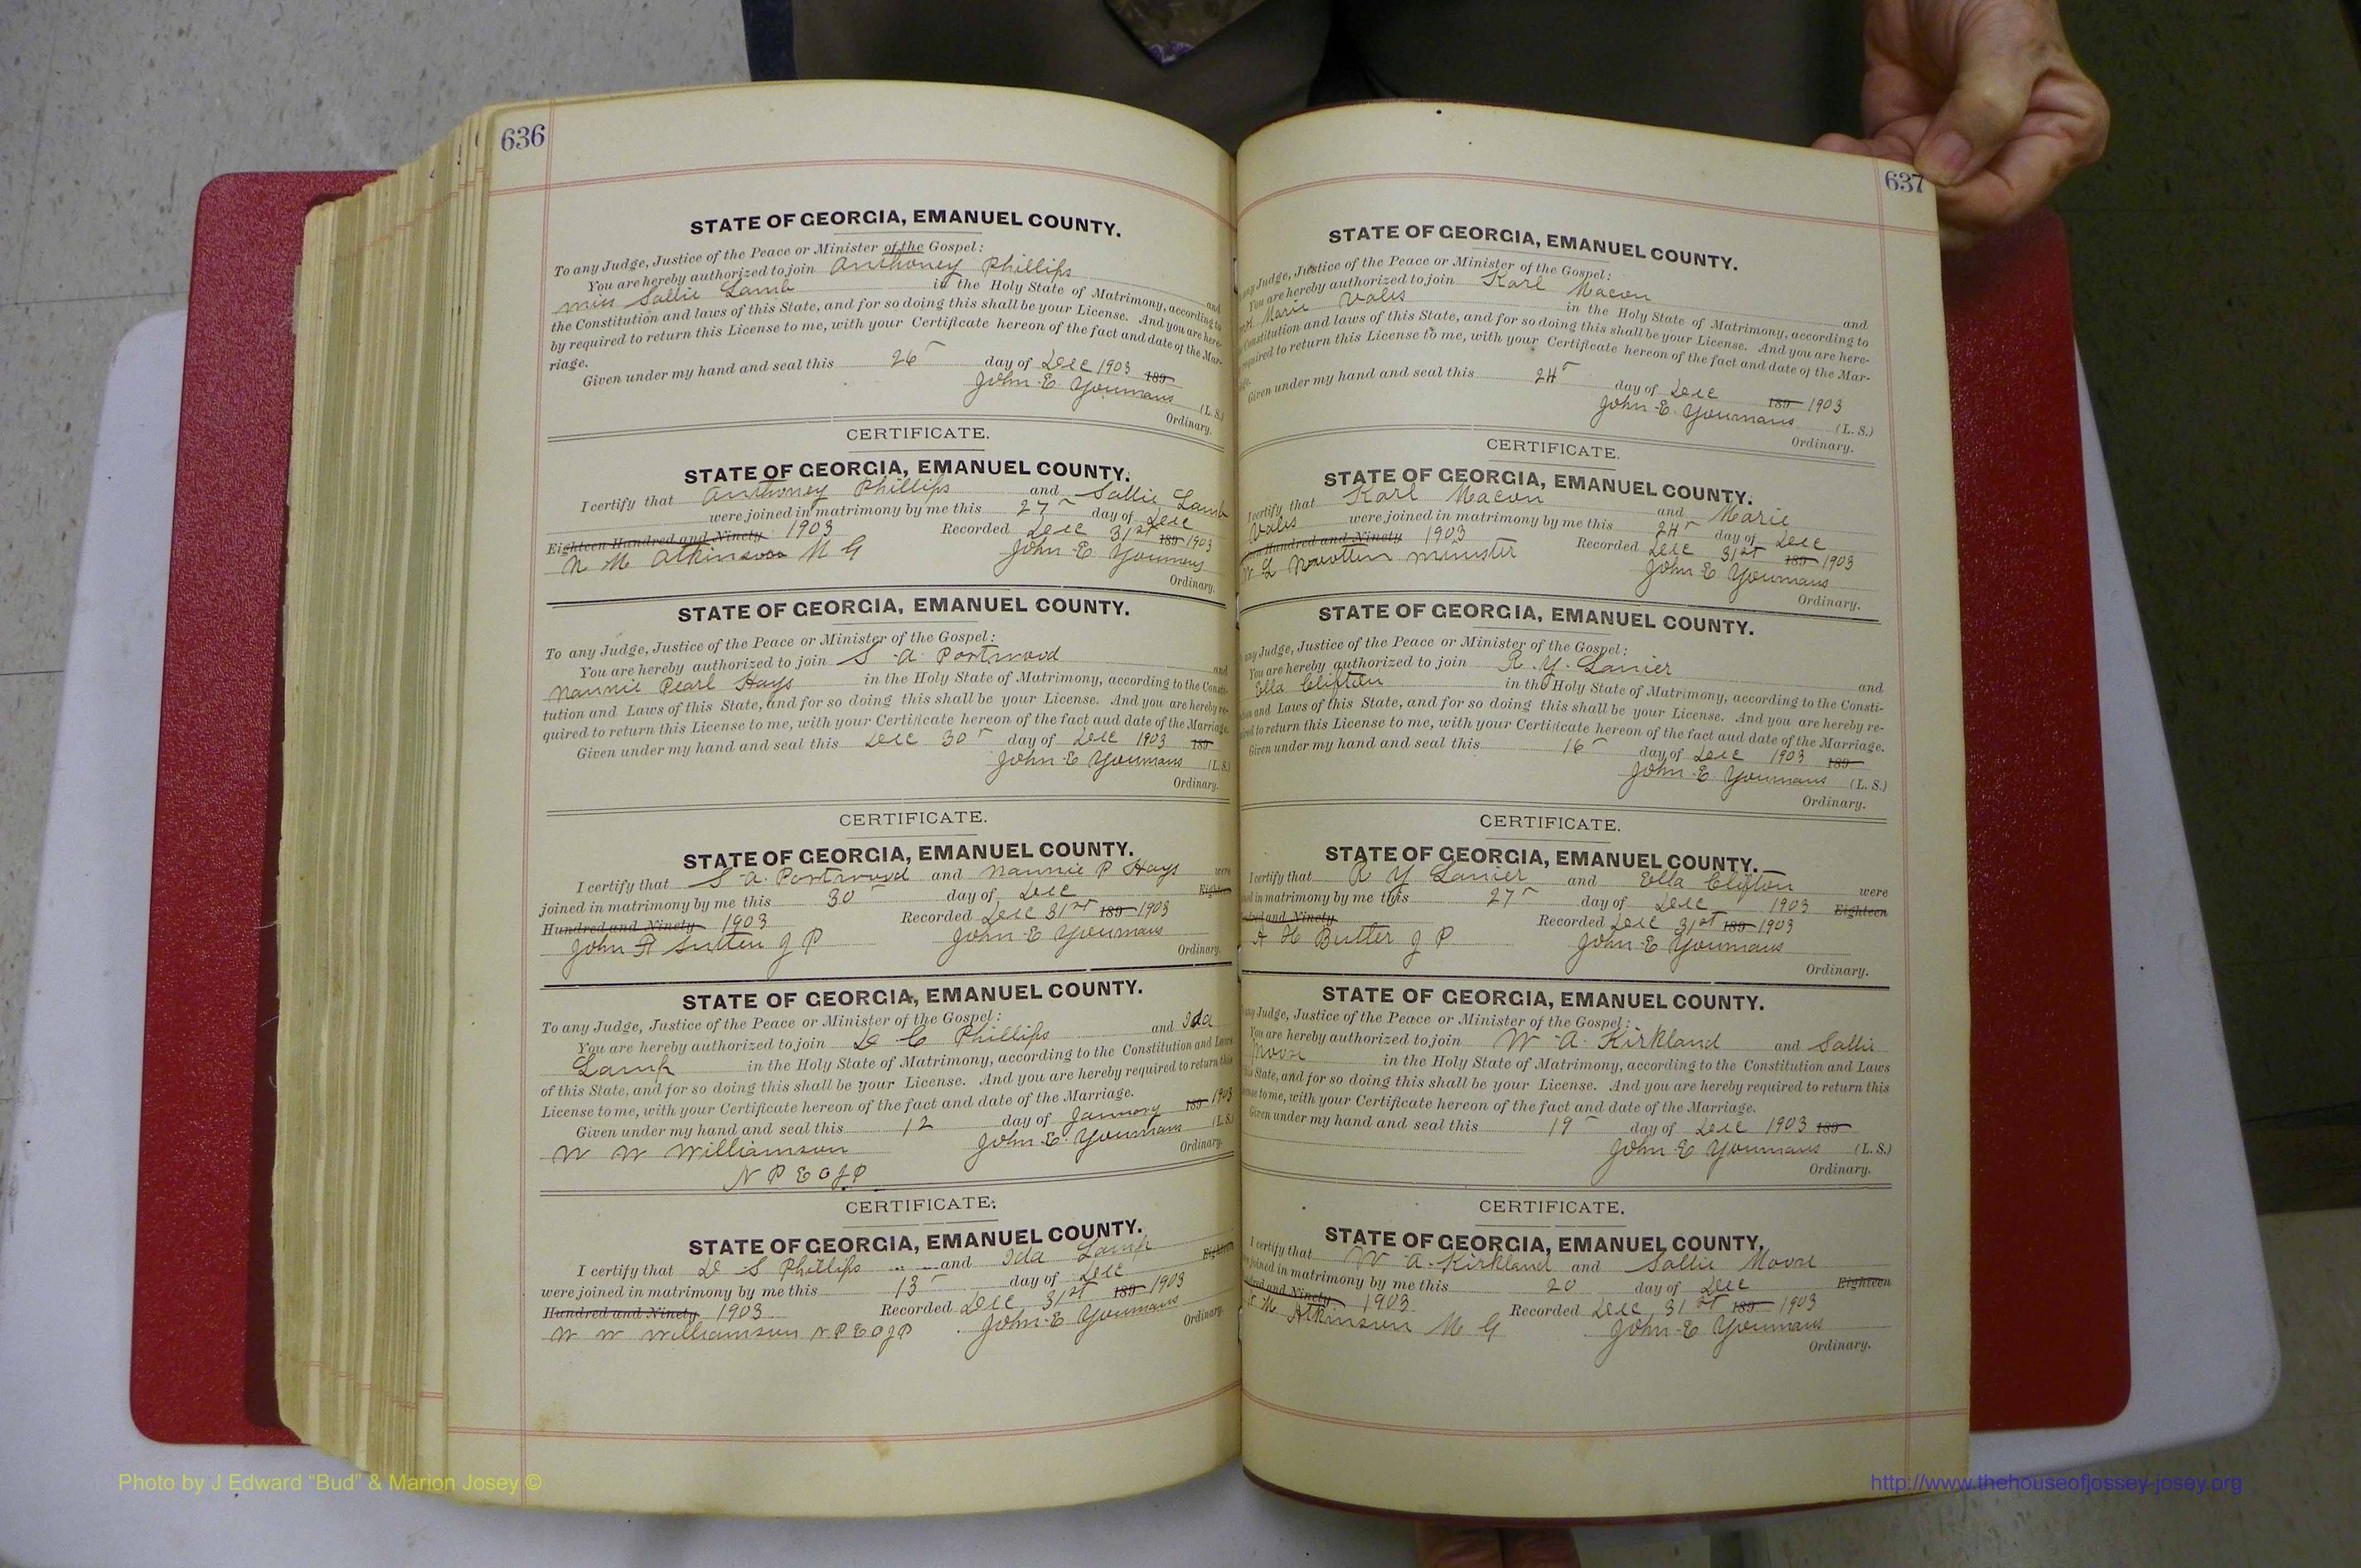 636
STATE OF GEORGIA, EMANUEL COUNTY.
To any Judge, Justice of the Peace or Minister of the Gospel:
You are hereby authorized to join Anthoney Phillips and
miss Sallie Lamb in the Holy State of Matrimony, according to
the Constitution and laws of this State, and for so doing this shall be your License. And you are here-
by required to return this License to me, with your Certificate hereon of the fact and date of the Mar-
riage.
Given under my hand and seal this 26 day of Dec 1903 189
John E Youmans (L. S.)
Ordinary.
CERTIFICATE.
STATE OF GEORGIA, EMANUEL COUNTY.
I certify that Anthoney Phillips and Sallie Lamb
were joined in matrimony by me this 27 day of Dec
Eighteen Hundred and Ninety 1903 Recorded Dec 31st 189 1903
N M Atkinson M G John E Youmans
Ordinary.
STATE OF GEORGIA, EMANUEL COUNTY.
To any Judge, Justice of the Peace or Minister of the Gospel:
You are hereby authorized to join S A Portwood and
Nannie Pearl Hays in the Holy State of Matrimony, according to the Consti-
tution and Laws of this State, and for so doing this shall be your License. And you are hereby re-
quired to return this License to me, with your Certificate hereon of the fact aud date of the Marriage.
Given under my hand and seal this Dec 30 day of Dec 1903 189
John E Youmans (L. S.)
Ordinary.
CERTIFICATE.
STATE OF GEORGIA, EMANUEL COUNTY.
I certify that S A. Portwood and Nannie P Hays were
joined in matrimony by me this 30 day of Dec Eighteen
Hundred and Ninety 1903 Recorded Dec 31st 189 1903
John R Sutten J P John E Youmans
Ordinary.
STATE OF GEORGIA, EMANUEL COUNTY.
To any Judge, Justice of the Peace or Minister of the Gospel:
You are hereby authorized to join D C Phillips and Ida
Lamp in the Holy State of Matrimony, according to the Constitution and Laws
of this State, and for so doing this shall be your License. And you are hereby required to return this
License to me, with your Certificate hereon of the fact and date of the Marriage.
Given under my hand and seal this 12 day of January 189 1903
W W Williamson John E Youmans (L. S.)
Ordinary.
N P E O J P
CERTIFICATE.
STATE OF GEORGIA, EMANUEL COUNTY.
I certify that D S Phillips and Ida Lamp Eighteen
were joined in matrimony by me this 13 day of Dec
Hundred and Ninety 1903 Recorded Dec 31st 189 1903
W W Williamson N P E O J P John E Youmans
Ordinary.
637
STATE OF GEORGIA, EMANUEL COUNTY.
any Judge, Justice of the Peace or Minister of the Gospel:
You are hereby authorized to join Karl Macon and
Marie Valis in the Holy State of Matrimony, according to
Constitution and laws of this State, and for so doing this shall be your License. And you are here-
required to return this License to me, with your Certificate hereon of the fact and date of the Mar-
Given under my hand and seal this 24 day of Dec 189 1903
John E Youmans (L. S.)
Ordinary.
CERTIFICATE.
STATE OF GEORGIA, EMANUEL COUNTY.
I certify that Karl Macon and Marie
Valis were joined in matrimony by me this 24 day of Dec
Hundred and Ninety 1903 Recorded Dec 31st 189 1903
minister John E Youmans
Ordinary.
STATE OF GEORGIA, EMANUEL COUNTY.
any Judge, Justice of the Peace or Minister of the Gospel:
You are hereby authorized to join R. Y. Lanier and
Ella Clifton in the Holy State of Matrimony, according to the Consti-
and Laws of this State, and for so doing this shall be your License. And you are hereby re-
to return this License to me, with your Certificate hereon of the fact aud date of the Marriage.
Given under my hand and seal this 16 day of Dec 1903 189
John E Youmans (L. S.)
Ordinary.
CERTIFICATE.
STATE OF GEORGIA, EMANUEL COUNTY.
I certify that R Y Lanier and Ella Clifton were
in matrimony by me this 27 day of Dec 1903 Eighteen
and Ninety Recorded Dec 31st 189 1903
H Butter J P John E Youmans
Ordinary.
STATE OF GEORGIA, EMANUEL COUNTY.
any Judge, Justice of the Peace or Minister of the Gospel:
You are hereby authorized to join W A. Kirkland and Sallie
Moore in the Holy State of Matrimony, according to the Constitution and Laws
State, and for so doing this shall be your License. And you are hereby required to return this
to me, with your Certificate hereon of the fact and date of the Marriage.
Given under my hand and seal this 19 day of Dec 1903 189
John E Youmans (L. S.)
Ordinary.
CERTIFICATE.
STATE OF GEORGIA, EMANUEL COUNTY.
I certify that W A. Kirkland and Sallie Moore
joined in matrimony by me this 20 day of Dec Eighteen
and Ninety 1903 Recorded Dec 31st 189 1903
M Atkinson M G John E Youmans
Ordinary.
Photo by J Edward “Bud” & Marion Josey ©
http://www.thehouseofjossey-josey.org